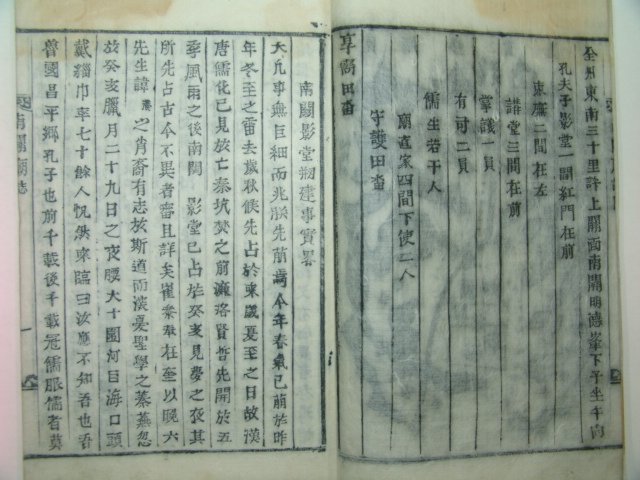 全州東南三十里許上關面南關明德峯下子坐午向
孔夫子影堂一間紅門在前
東廡二間在左
講堂三間在前
掌議一員
有司二員
儒生若干人
廟直家四間下使二人
守護田畓
享需田畓
南關影堂刱建事實畧
大凡事無巨細而兆朕先萌焉今年春氣已萌於昨
年冬至之雷去歲秋候先占於來歲夏至之日故漢
唐儒化已見於亡秦坑焚之前濂洛賢哲先開於五
季風雨之後南關 影堂已占於癸亥見夢之夜其
所先占古今不異者審且詳矣崔 在至以晚六
先生諱 之肖裔有志於斯道而深憂聖學之蓁蕪忽
於癸亥臘月二十九日之夜腰大十圍河目海口頭
戴緇巾率七十餘人怳然來臨曰汝應不知吾也吾
魯國昌平鄉孔子也前千載後千載冠儒服儒者莫
南關廟誌
一